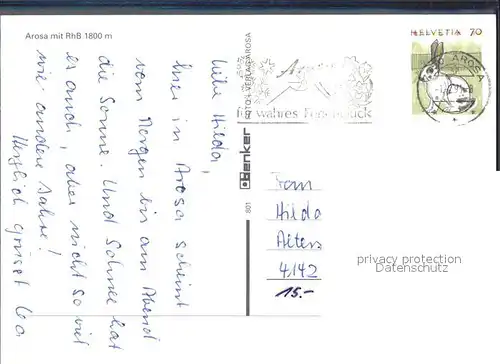 Arosa mit RhB 1800 m
HELVETIA 70
AROSA
FOTO + VERLAG AROSA
Benker
801
Liebe Hilda,
hier in Arosa scheint
vom Morgen bis am Abend
die Sonne. Und Schnee hat
es auch, aber nicht so viel
wie andere Jahre!
Herzlich grüsst
Frau
Hilda
4142
15.-
privacy protection
Datenschutz